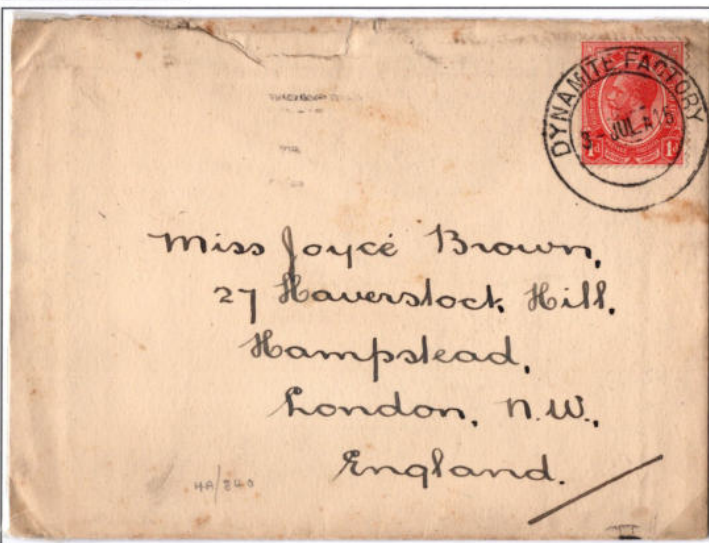 DYNAMITE FACTORY
3 - JUL A 16
1d 1d
Miss Joyce Brown,
27 Haverstock Hill,
Hampstead,
London, N.W.,
England.
4A/240